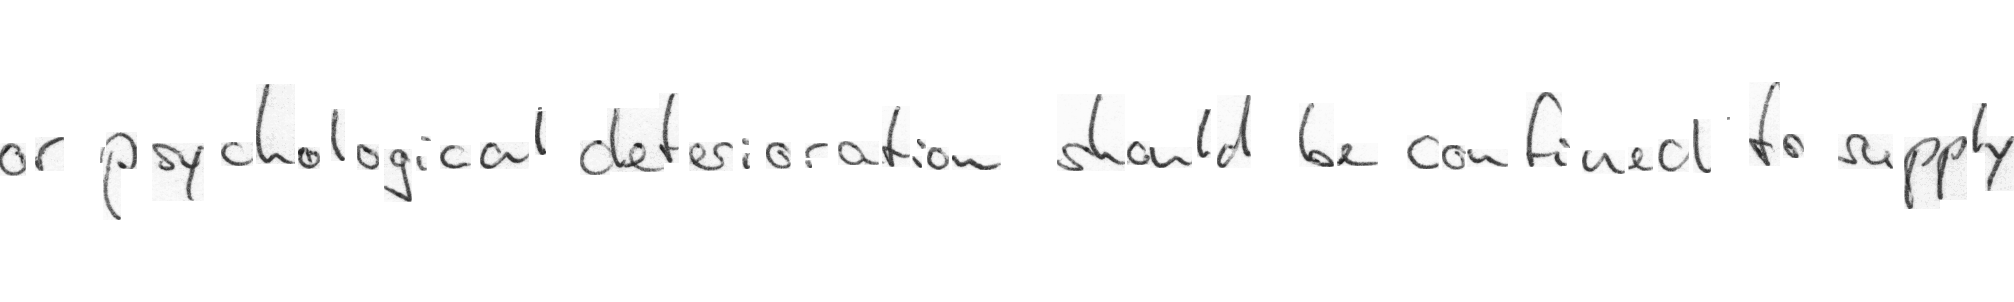 or psychological deterioration should be confined to supply